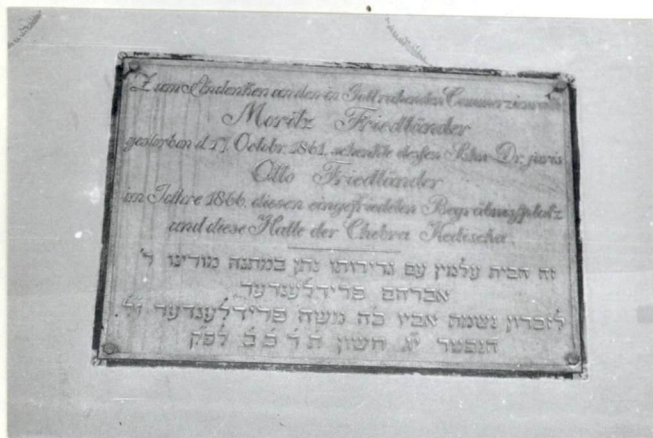 Zum Andenken an den in Gott ruhenden Commerzienrath
Moritz Friedländer
gestorben d. 17. Octobr. 1861, schenkte deßen Sohn Dr. juris
Otto Friedländer
im Jahre 1866. diesen eingefriedeten Begräbnißplatz
und diese Halle der Chebra Kadischa.
זה הבית עלמין עם גדירותו נתן במתנה מודינו ר'
אברהם פרידלענדער
לזכרון נשמת אביו כ'ה משה פרידלענדער ז'ל.
הנפטר י'ג חשון ת'ר'כ'ב' לפ'ק